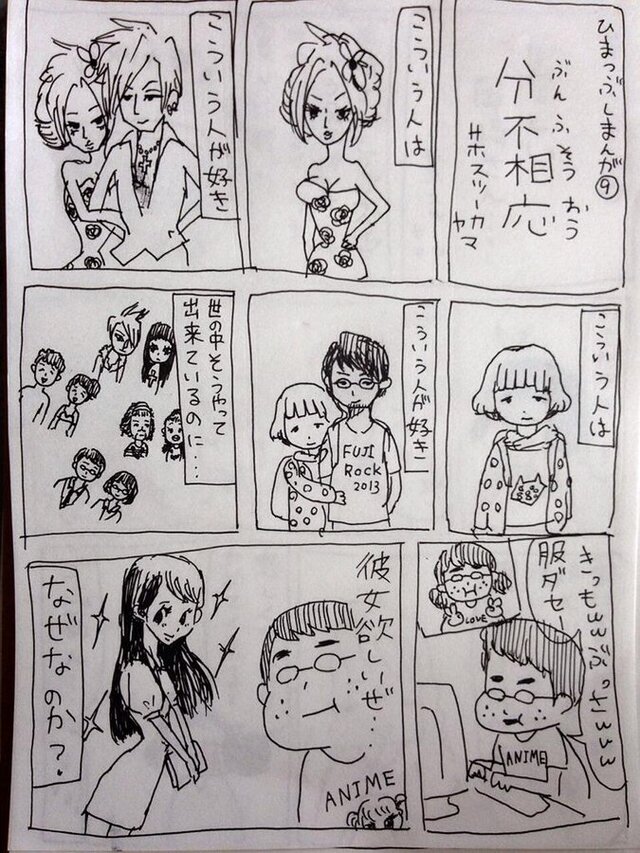 ひまつぶしまんが⑨
ぶんふそうおう
分不相応
サホスツーカヤマ
こういう人は
こういう人が好き
こういう人は
こういう人が好き
FUJI
Rock
2013
世の中そうやって
出来ているのに…
きっもwwぶっさwww
服ダセー
LOVE
ANIME
彼女欲しいぜ…
ANIME
なぜなのか?